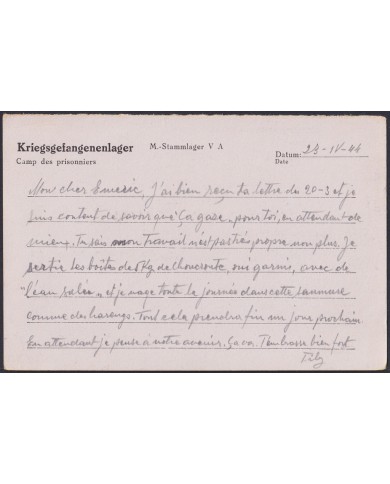 Kriegsgefangenenlager M.-Stammlager V A
Camp des prisonniers
Datum: 23-IV-44
Date
Mon cher Emeric, J'ai bien reçu ta lettre du 20-3 et je
suis content de savoir que "Ça gaze" pour toi, en attendant de
mieux. Tu sais mon travail n'est pas très propre non plus. Je
les boîtes de 5Kg de choucroute, mi garnis, avec de
"l'eau salée" et je nage toute la journée dans cette saumure
comme des harengs. Tout cela prendra fin un jour prochain.
En attendant je pense à notre avenir. Ça va. T'embrasse bien fort